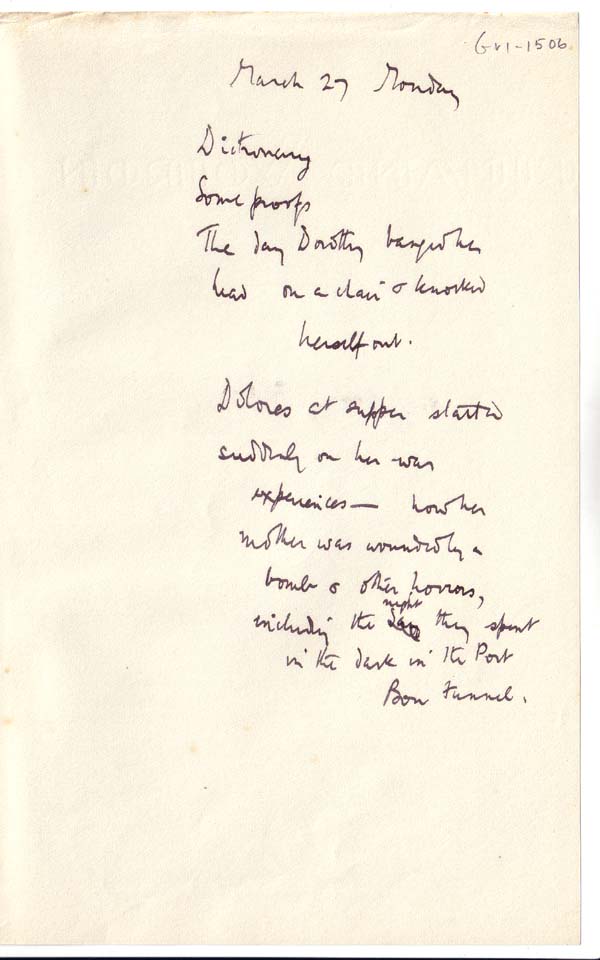 GVI-1506.
March 27 Monday
Dictionary
Some proofs
The day Dorothy banged her
head on a chair & knocked
herself out.
Dolores at supper started
suddenly on her war
experiences — how her
mother was wounded by a
bomb & other horrors,
night
including the day they spent
in the dark in the Port
Bou Tunnel.